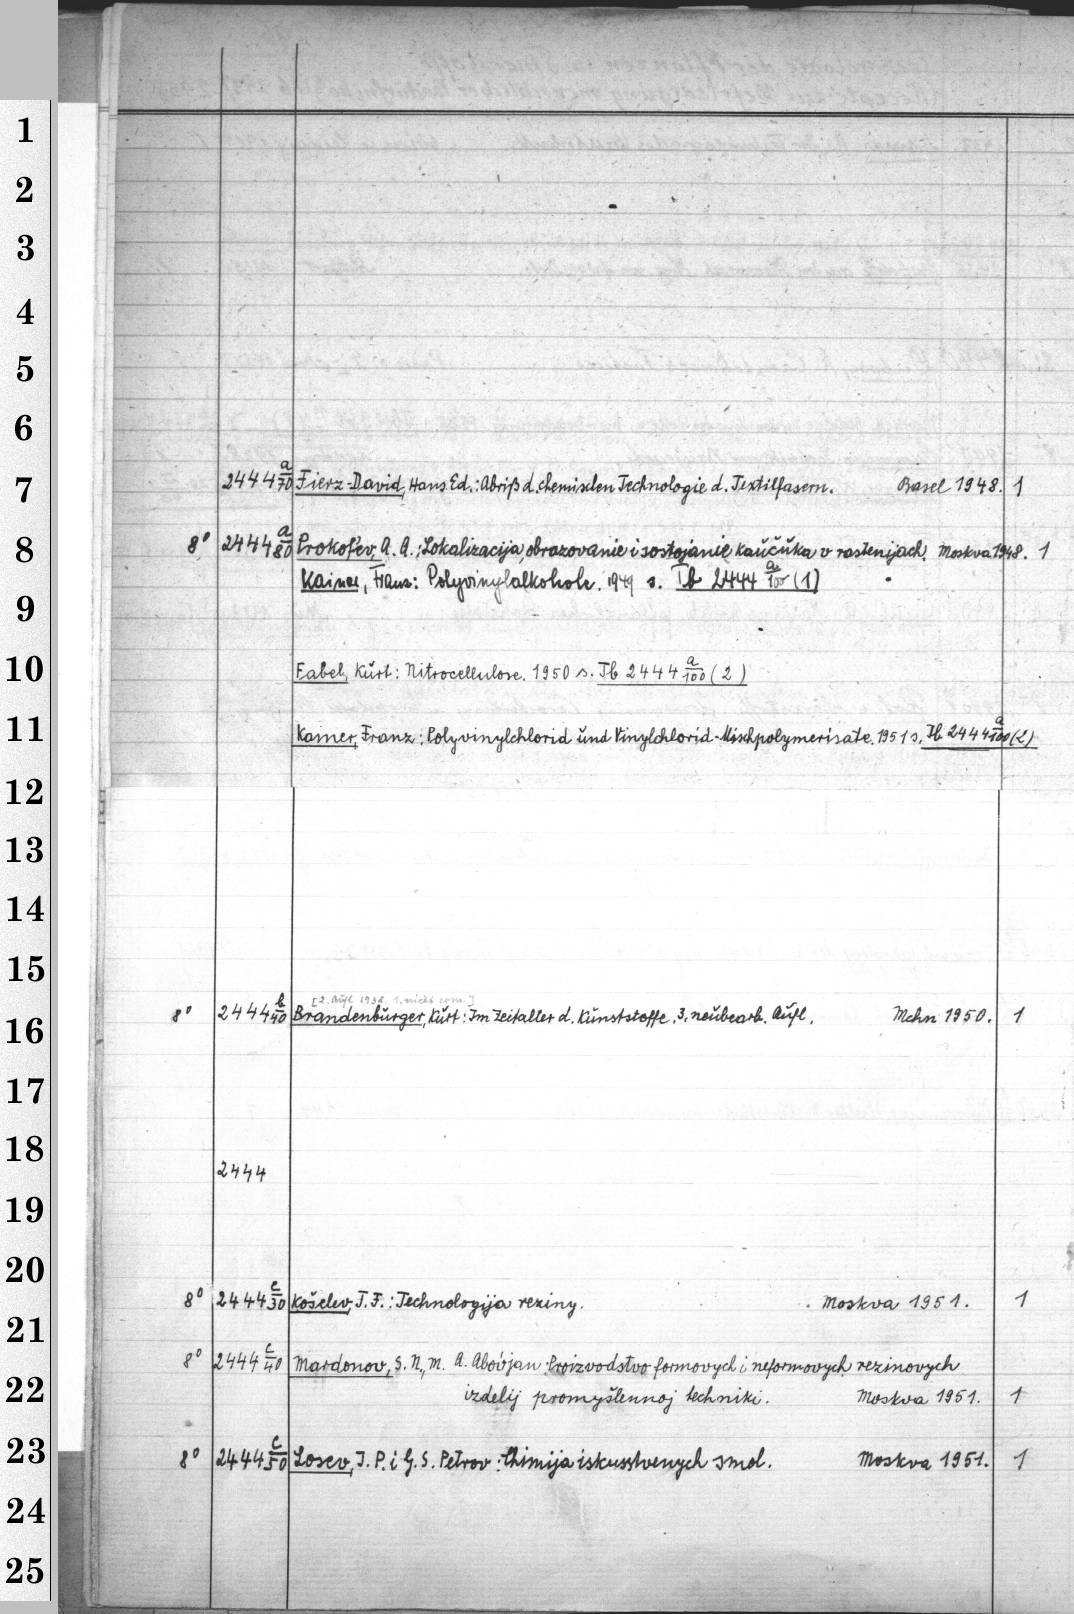 1
2
3
4
5
6
7 2444 a/70 Fierz-David, Hans Ed.: Abriß d. chemischen Technologie d. Textilfasern. Basel 1948. 1
8 8° 2444 a/80 Prokof'ev, A. A.: Lokalizacija, obrazovanie i sostojanie kaučuka v rastenijach. Moskva 1948. 1
Kainer, Franz: Polyvinylalkohole. 1949 s. Tb 2444 a/100 (1)
9
10 Fabel, Kurt: Nitrocellulose. 1950 s. Tb 2444 a/100 (2)
11 Kainer, Franz: Polyvinylchlorid und Vinylchlorid-Mischpolymerisate. 1951 s. Tb 2444 a/100 (2)
12
13
14
15
[2. Aufl 1938. 1. nicht com.]
16 8° 2444 b/40 Brandenburger, Kurt: Im Zeitalter d. Kunststoffe. 3. neubearb. Aufl. Mchn 1950. 1
17
18 2444
19
20
8° 2444 c/30 Košelev, I. F.: Technologija reziny. Moskva 1951. 1
21
8° 2444 c/40 Mardonov, S. N., M. A. Abovjan: Proizvodstvo formovych i neformovych rezinovych
22 izdelij promyšlennoj techniki. Moskva 1951. 1
23 8° 2444 c/50 Losev, I. P. i G. S. Petrov: Chimija iskusstvenych smol. Moskva 1951. 1
24
25